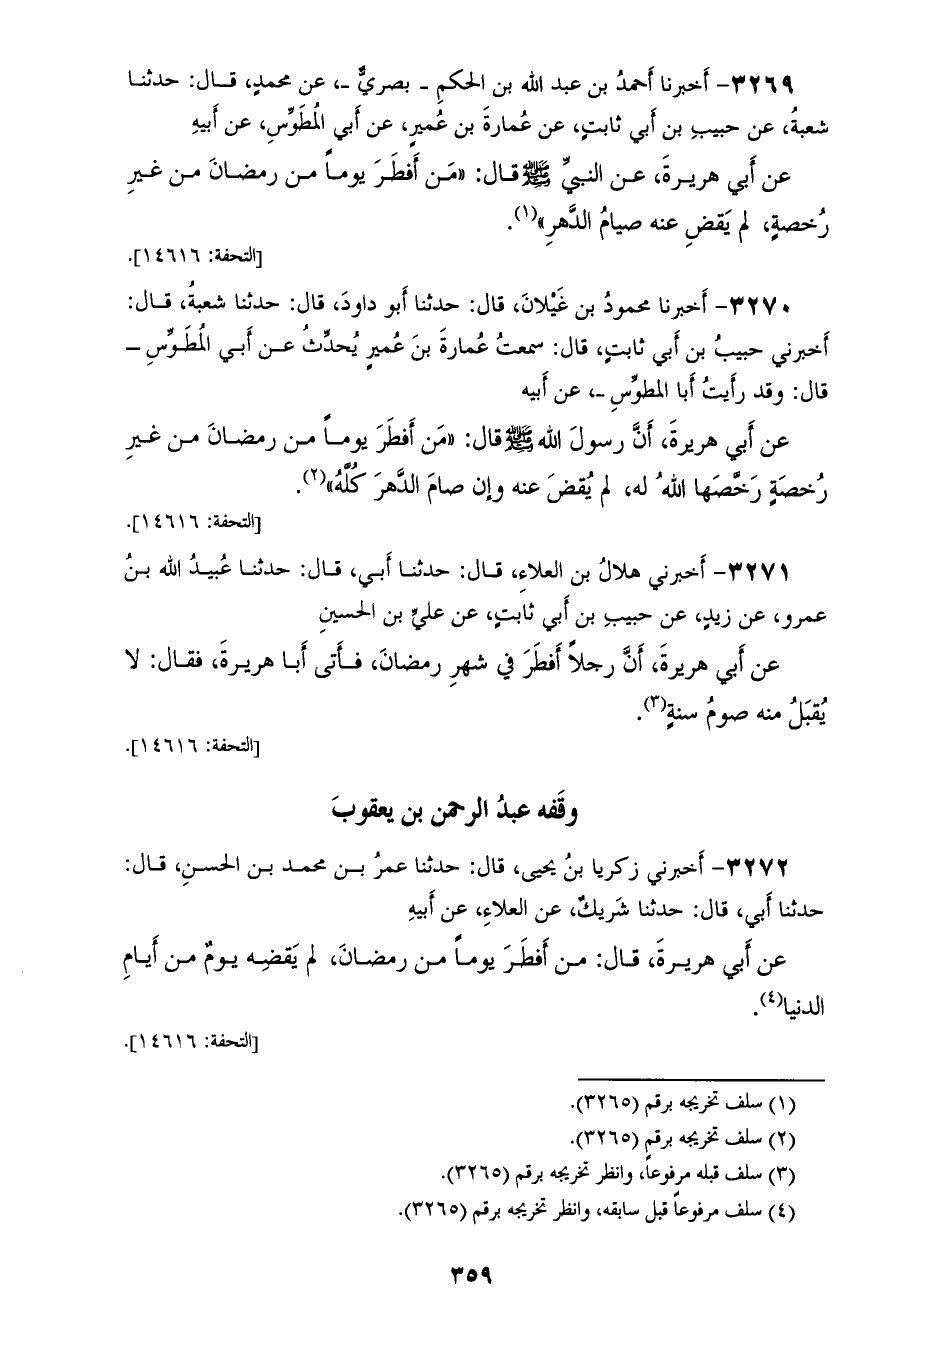 ٣٢٦٩- أخبرنا أحمدُ بن عبد الله بن الحكمِ - بصريٌّ -، عن محمدٍ، قـال: حدثنـا
شعبةُ، عن حبيبِ بن أبي ثابتٍ، عن عُمارةَ بن عُميرٍ، عن أبي المُطَوِّسِ، عن أبيهِ
عن أبي هريـرةَ، عـن النبيِّ ﷺ قـال: «مَـن أفطَـرَ يومـاً مـن رمضـانَ مـن غـيرِ
رُخصةٍ، لم يَقضِ عنه صيامُ الدَّهرِ»(١).
[التحفة: ١٤٦١٦].
٣٢٧٠- أخبرنا محمودُ بن غَيْلانَ، قال: حدثنا أبو داودَ، قال: حدثنا شعبةُ، قـال:
أخبرني حبيبُ بن أبي ثابتٍ، قال: سمعتُ عُمارةَ بنَ عُميرٍ يُحدِّثُ عـن أبـي المُطَـوِّسِ -
قال: وقد رأيتُ أبا المطوِّسِ -، عن أبيه
عن أبي هريرةَ، أنَّ رسولَ الله ﷺ قال: «مَن أفطَرَ يومـاً مـن رمضـانَ مـن غـيرِ
رُخصَةٍ رَخَّصَها اللهُ له، لم يُقضَ عنه وإن صامَ الدَّهرَ كُلَّهُ»(٢).
[التحفة: ١٤٦١٦].
٣٢٧١- أخبرني هلالُ بن العلاءِ، قـال: حدثنـا أبي، قال: حدثنـا عُبيـدُ الله بـنُ
عمرو، عن زيدٍ، عن حبيبِ بن أبي ثابتٍ، عن عليِّ بن الحسينِ
عن أبي هريرةَ، أنَّ رجلاً أفطَرَ في شهرِ رمضانَ، فـأتى أبـا هريـرةَ، فقـال: لا
يُقبَلُ منه صومُ سنةٍ(٣).
[التحفة: ١٤٦١٦].
وقَفه عبدُ الرحمن بن يعقوبَ
٣٢٧٢- أخبرني زكريا بنُ يحيى، قال: حدثنا عمرُ بـن محمـد بـن الحسـنِ، قـال:
حدثنا أبي، قال: حدثنا شَريكٌ، عن العلاءِ، عن أبيهِ
عن أبي هريـرةَ، قـال: مـن أفطَـرَ يومـاً مـن رمضـانَ، لم يَقضِـه يـومٌ مـن أيـامِ
الدنيا(٤).
[التحفة: ١٤٦١٦].
(١) سلف تخريجه برقم (٣٢٦٥).
(٢) سلف تخريجه برقم (٣٢٦٥).
(٣) سلف قبله مرفوعاً، وانظر تخريجه برقم (٣٢٦٥).
(٤) سلف مرفوعاً قبل سابقه، وانظر تخريجه برقم (٣٢٦٥).
٣٥٩